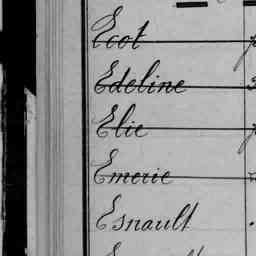 Ecot
Edeline
Elie
Emerie
Esnault